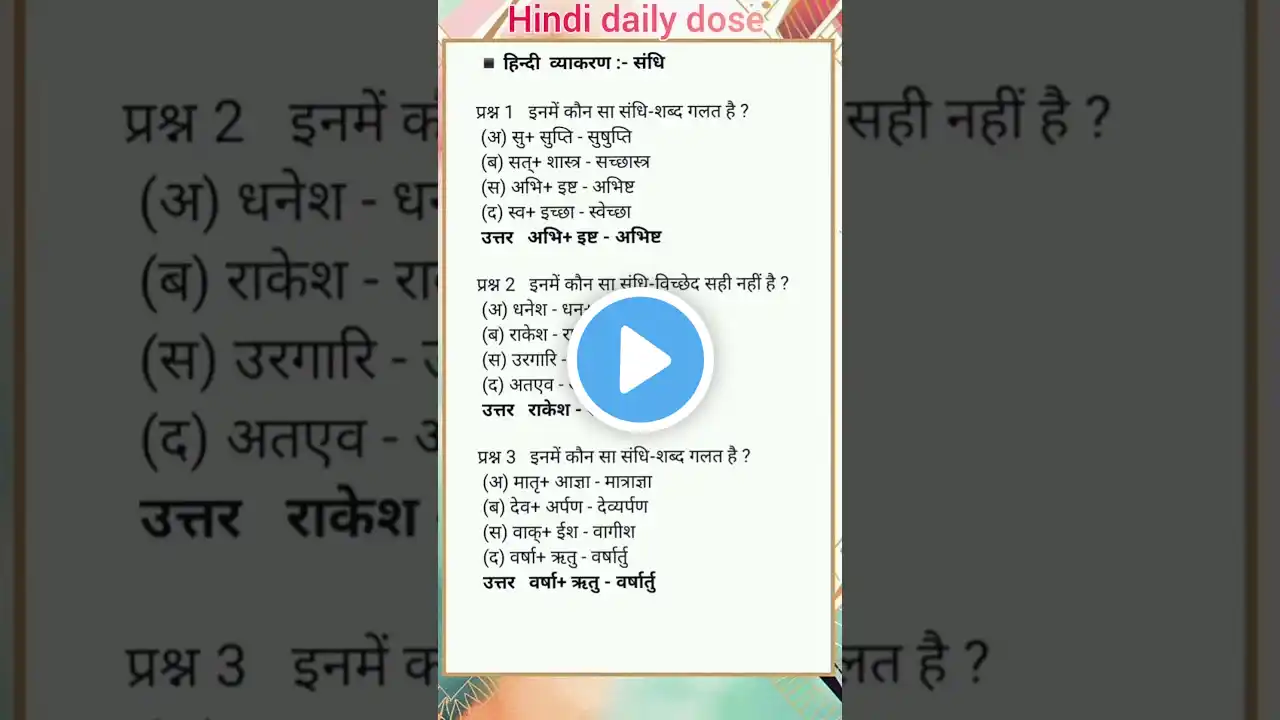 Hindi daily dose
▪ हिन्दी व्याकरण :- संधि
प्रश्न 1 इनमें कौन सा संधि-शब्द गलत है ?
(अ) सु+ सुप्ति - सुषुप्ति
(ब) सत्+ शास्त्र - सच्छास्त्र
(स) अभि+ इष्ट - अभिष्ट
(द) स्व+ इच्छा - स्वेच्छा
उत्तर अभि+ इष्ट - अभिष्ट
प्रश्न 2 इनमें कौन सा संधि-विच्छेद सही नहीं है ?
(अ) धनेश - धन+
(ब) राकेश -
(स) उरगारि -
(द) अतएव -
उत्तर राकेश -
प्रश्न 3 इनमें कौन सा संधि-शब्द गलत है ?
(अ) मातृ+ आज्ञा - मात्राज्ञा
(ब) देव+ अर्पण - देव्यर्पण
(स) वाक्+ ईश - वागीश
(द) वर्षा+ ऋतु - वर्षार्तु
उत्तर वर्षा+ ऋतु - वर्षार्तु
प्रश्न 2 इनमें
सही नहीं है ?
(अ) धनेश -
(ब) राकेश -
(स) उरगारि -
(द) अतएव -
उत्तर राकेश
प्रश्न 3 इनमें
है ?